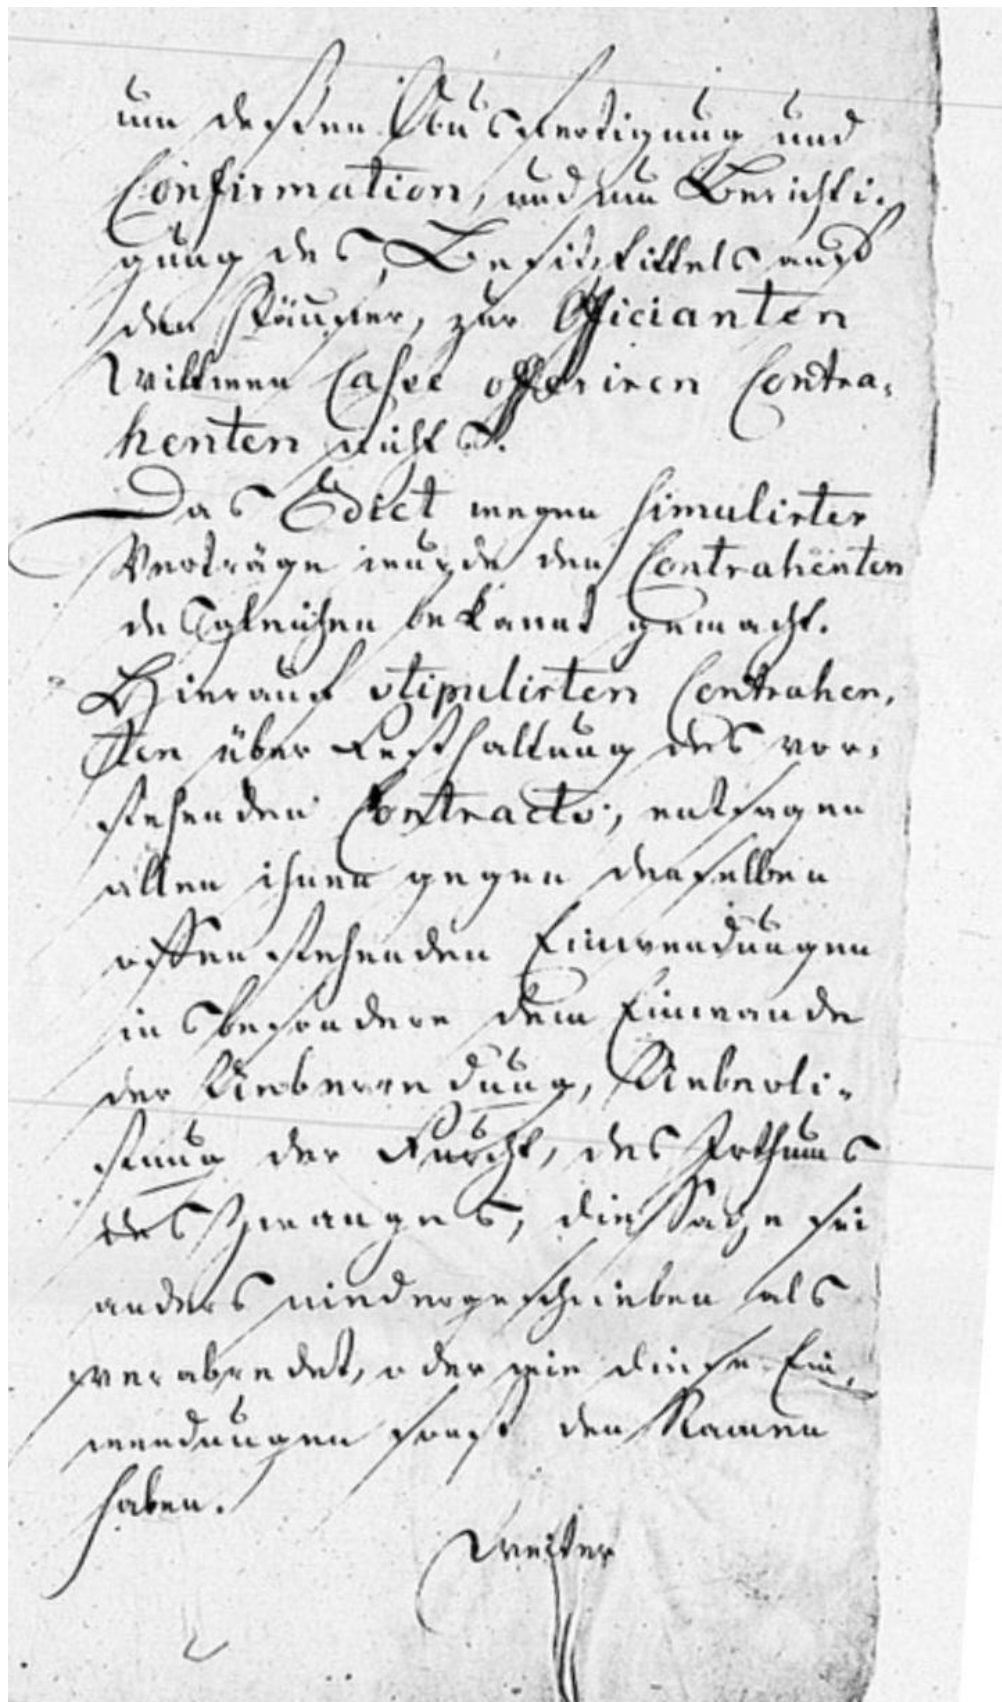 um deßen Ausfertigung und
Confirmation, und um Berichti-
gung des Besitztittels auf
den Käufer, zur Officianten
Wittwen Casse offeriren Contra-
henten nichts.
Das Edict wegen simulirter
Verträge wurde den Contrahenten
desgleichen bekannt gemacht.
Hierauf stipulirten Contrahen-
ten über Festhaltung des vor-
stehenden Contracts, entsagen
allen ihnen gegen denselben
offen stehenden Einwendungen
insbesondere dem Einwande
der Ueberredung, Ueberli-
stung der Furcht, des Irthums
des Zwanges, die Sache sei
anders niedergeschrieben als
verabredet, oder wie diese Ein-
wendungen sonst den Namen
haben.